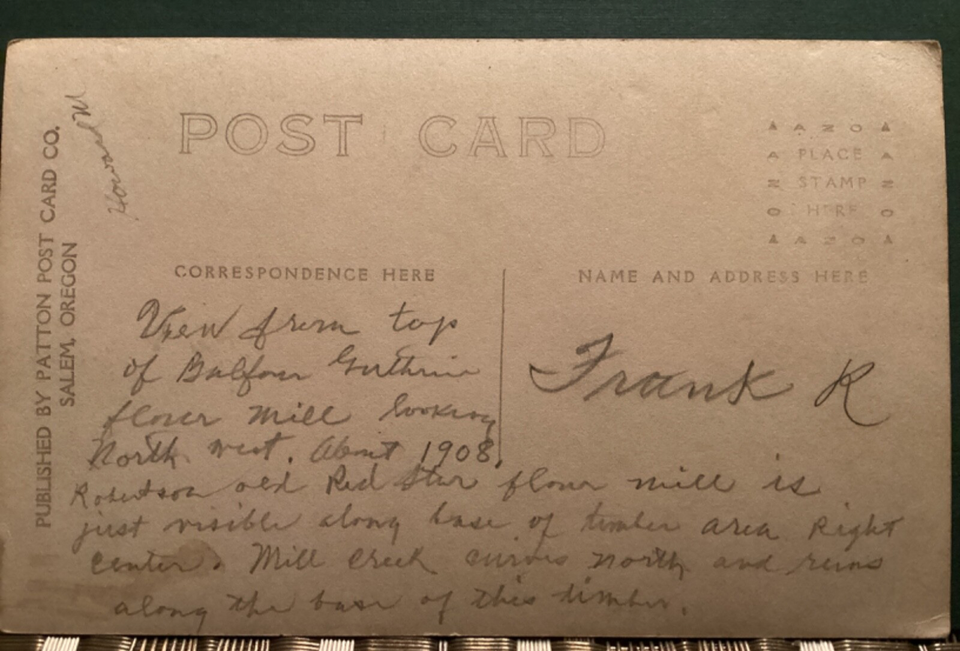 POST CARD
AZO
PLACE
STAMP
HERE
AZO
CORRESPONDENCE HERE
NAME AND ADDRESS HERE
PUBLISHED BY PATTON POST CARD CO.
SALEM, OREGON
Howard M
View from top
of Balfour Guthrie
flour mill looking
North west. About 1908.
Robertson old Red Star flour mill is
just visible along base of timber area Right
center. Mill Creek curves north and runs
along the base of this timber.
Frank R